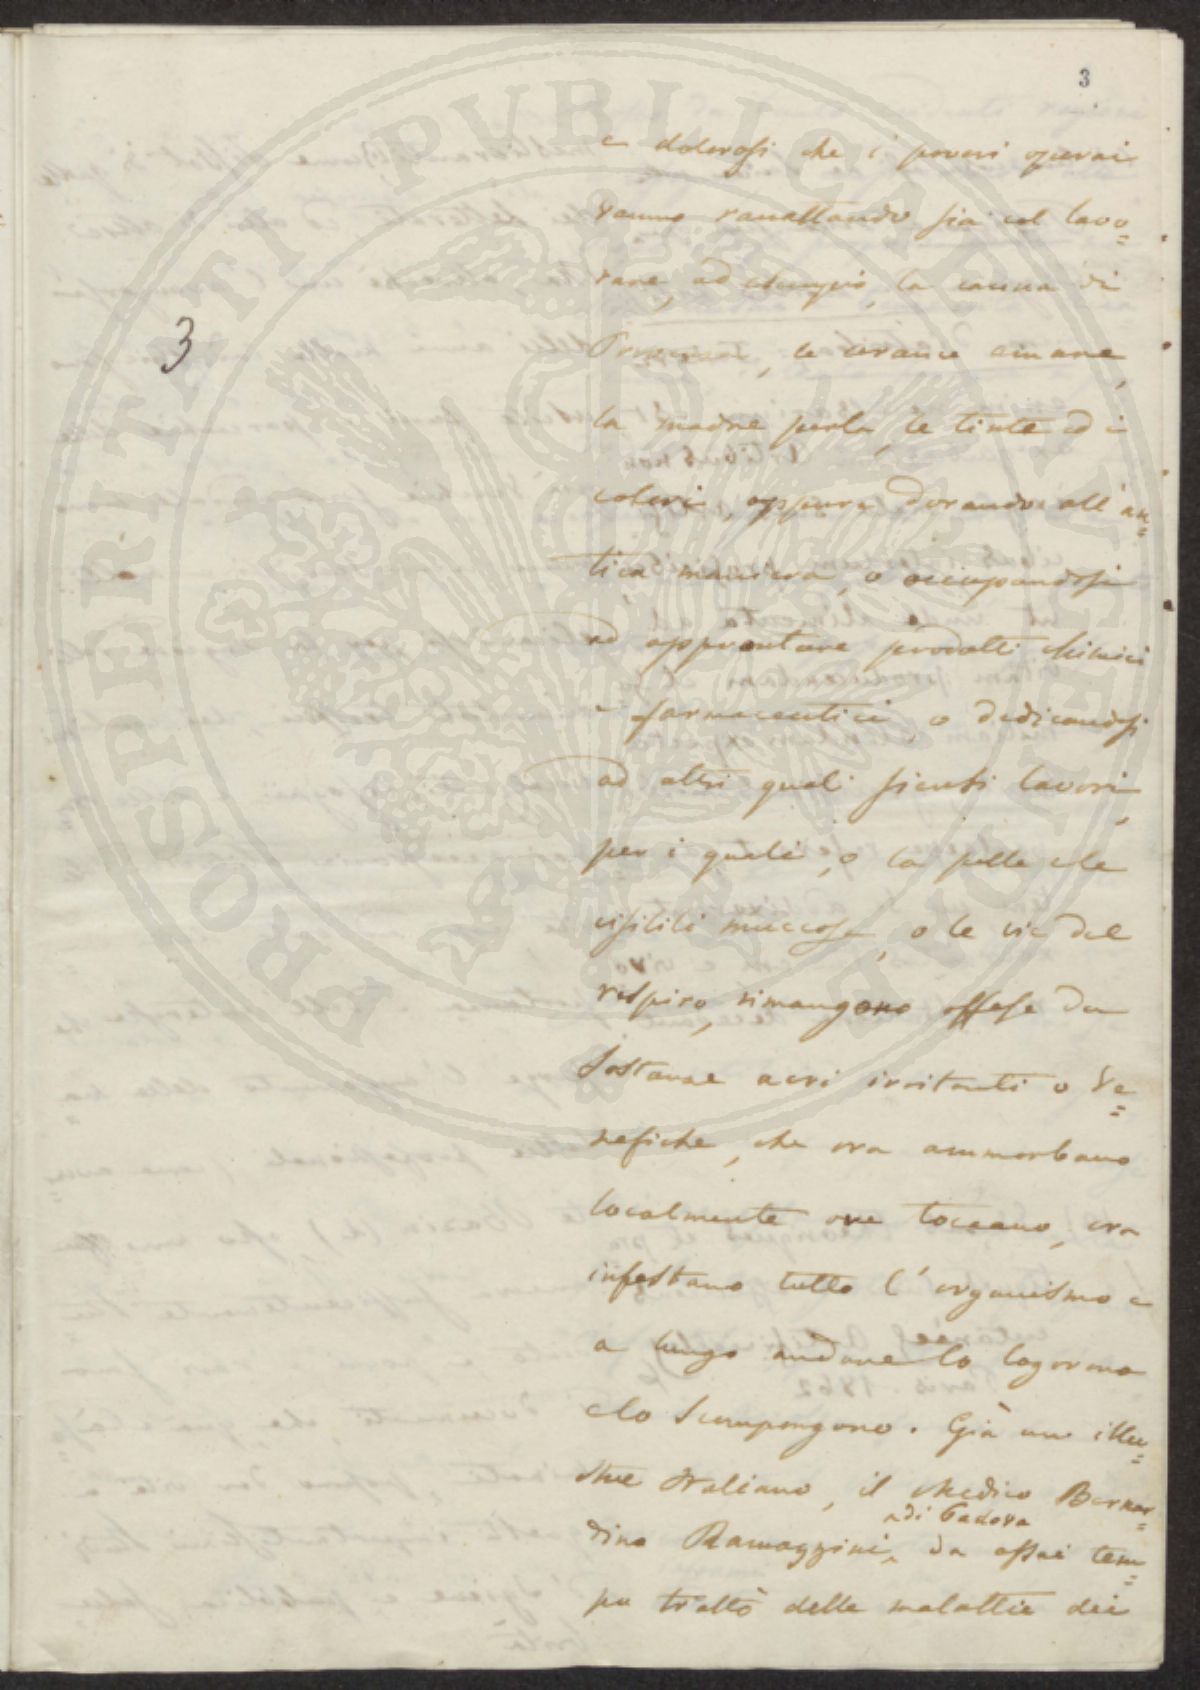 3
3
e dolorosi che i poveri operai
vanno racattando sia col lavo=
rare, ad esempio, la canna di
Provenza, le arance amare,
la madre perla, le tinte ed i
colori, oppure dorando all'an=
tica maniera, o occupandosi
ad approntare prodotti chimici
e farmaceutici, o dedicandosi
ad altri quali siensi lavori,
per i quali, o la pelle e le
visibili muccose, o le vie del
respiro, rimangono offese da
sostanze acri irritanti o ve=
nefiche, che ora ammorbano
localmente ove toccano, ora
infestano tutto l'organismo e
a lungo andare lo logorano
e lo scompongono. Già un illu=
stre Italiano, il Medico Bernar=
di Padova
dino Ramazzini, da assai tem=
po trattò delle malattie dei
PROSPERITATI PUBLICAE AUGENDAE